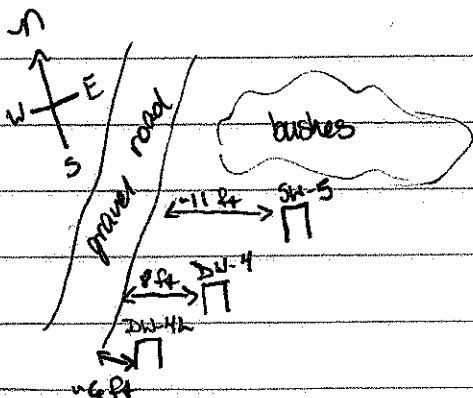 N
W E
S
gravel road
bushes
~11 ft
SW-5
8 ft
DW-4
DW-4L
~6 ft